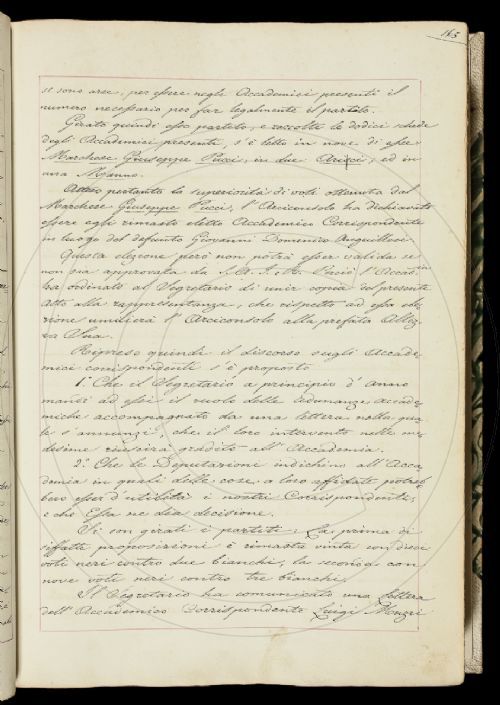 165
si sono arse, per essere negli Accademici presenti il
numero necessario per far legalmente il partito.
Girato quindi esso partito, e raccolte le dodici schede
degli Accademici presenti, s'è letto in nove di esse
Marchese Giuseppe Pucci, in due, ed in
una Manno.
Atteso pertanto la superiorità di voti ottenuta dal
Marchese Giuseppe Pucci, l'Arciconsolo ha dichiarato
essere egli rimasto eletto Accademico Corrispondente
in luogo del defunto Giovanni Domenico Anguillesi.
Questa elezione però non potrà esser valida se
non sia approvata da S. A. I. e R. Perciò l'Accad.
ha ordinato al Segretario di unir copia del presente
Atto alla rappresentanza, che rispetto ad essa ele
zione umilierà l'Arciconsolo alla prefata Altez
za Sua.
Ripreso quindi il discorso sugli Accade
mici corrispondenti s'è proposto
1.° Che il Segretario a principio d'anno
mandi ad essi il ruolo delle adunanze accade
miche accompagnato da una lettera nella qua
le s'annunzi, che il loro intervento nelle me
desime riuscirà gradito all'Accademia.
2.° Che le Deputazione indichino all'Acca
demia in quali delle cose a loro affidate potreb
bero esser d'utilità i nostri Corrispondenti,
e che Essa ne dia decisione.
Si son girati i partiti. La prima di
siffatte proposizioni è rimasta vinta con diece
voti neri contro due bianchi, la seconda con
nove voti neri contro tre bianchi.
Il Segretario ha comunicato una lettera
dell'Accademico Corrispondente Luigi Muzzi